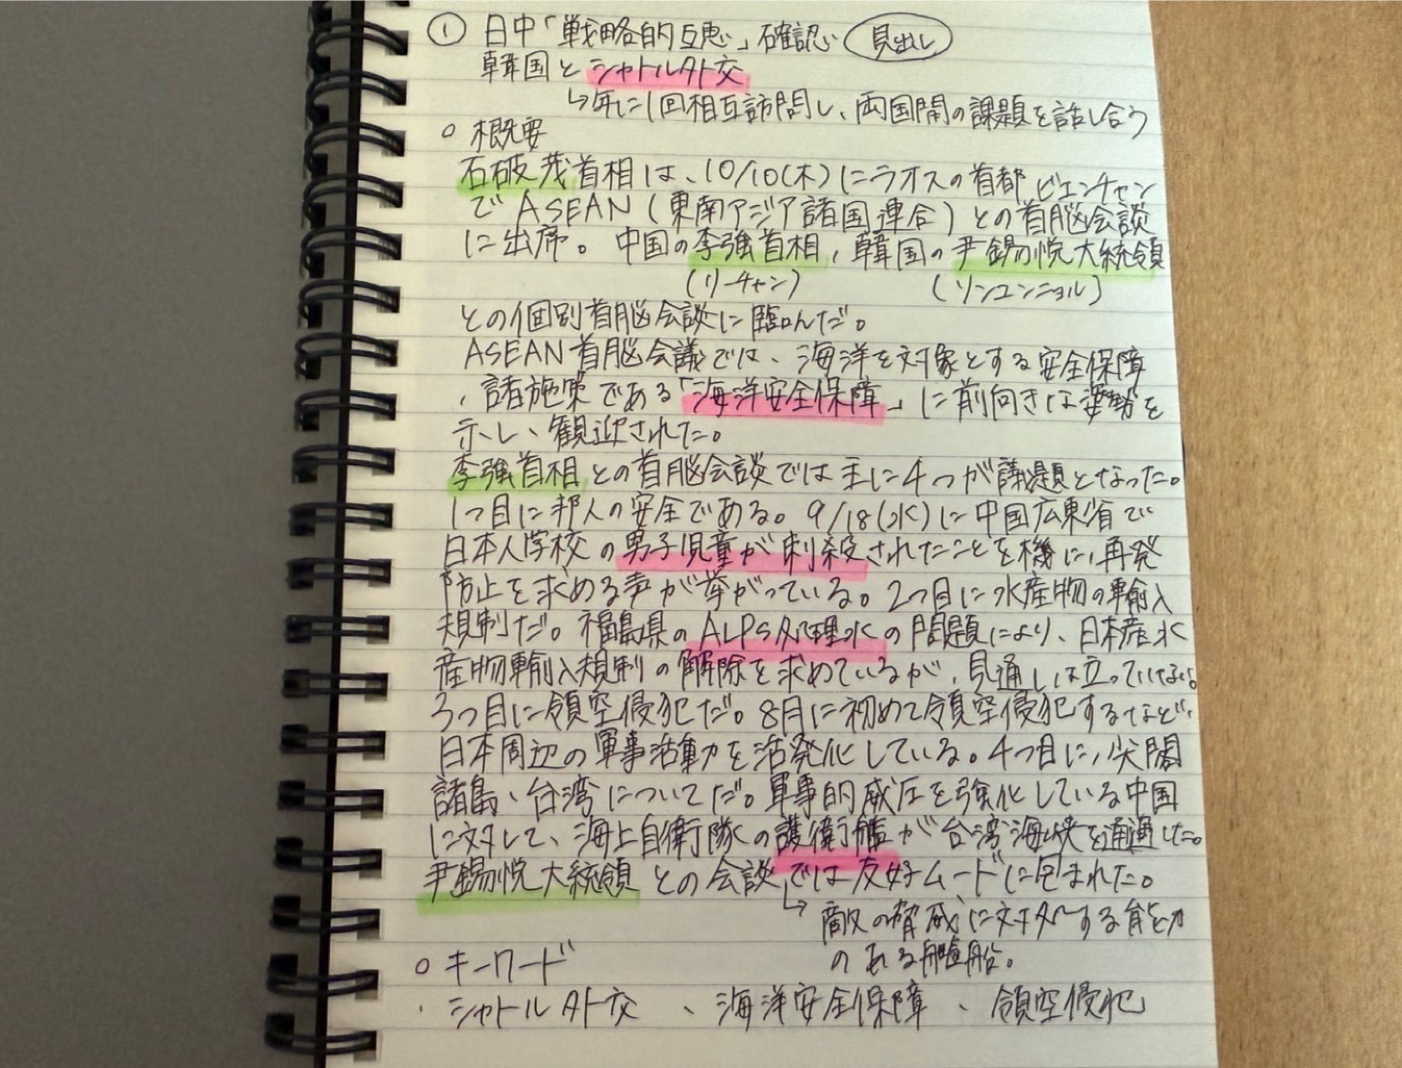 ① 日中「戦略的互恵」確認 見出し
韓国とシャトル外交
↳年に1回相互訪問し、両国間の課題を話し合う
○ 概要
石破茂首相は、10/10(木)にラオスの首都ビエンチャン
でASEAN(東南アジア諸国連合)との首脳会談
に出席。中国の李強首相、韓国の尹錫悦大統領
(リーチャン) (ソンユンニョル)
との個別首脳会談に臨んだ。
ASEAN首脳会議では、海洋を対象とする安全保障
、諸施策である「海洋安全保障」に前向きな姿勢を
示し、観迎された。
李強首相との首脳会談では主に4つが議題となった。
1つ目に邦人の安全である。9/18(水)に中国広東省で
日本人学校の男子児童が刺殺されたことを機に、再発
防止を求める声が挙がっている。2つ目に水産物の輸入
規制だ。福島県のALPs処理水の問題により、日本産水
産物輸入規制の解除を求めているが、見通しは立っていない。
3つ目に領空侵犯だ。8月に初めて領空侵犯するなど、
日本周辺の軍事活動を活発化している。4つ目に、尖閣
諸島、台湾についてだ。軍事的威圧を強化している中国
に対して、海上自衛隊の護衛艦が台湾海峡を通過した。
尹錫悦大統領との会談では友好ムードに包まれた。
↳敵の脅威に対処する能力
のある艦船。
○ キーワード
・シャトル外交、海洋安全保障、領空侵犯